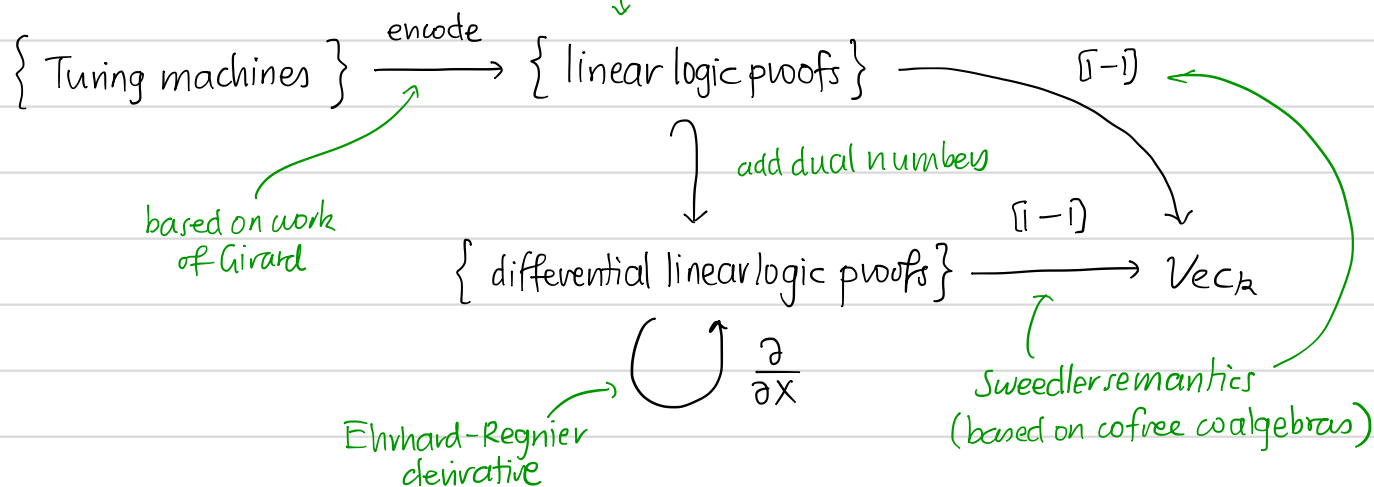 encode
{ Turing machines } → { linear logic proofs } ⟦-⟧
add dual numbers
based on work
of Girard
⟦-⟧
{ differential linear logic proofs } → Vec_k
∂/∂x
Sweedler semantics
(based on cofree coalgebras)
Ehrhard-Regnier
derivative